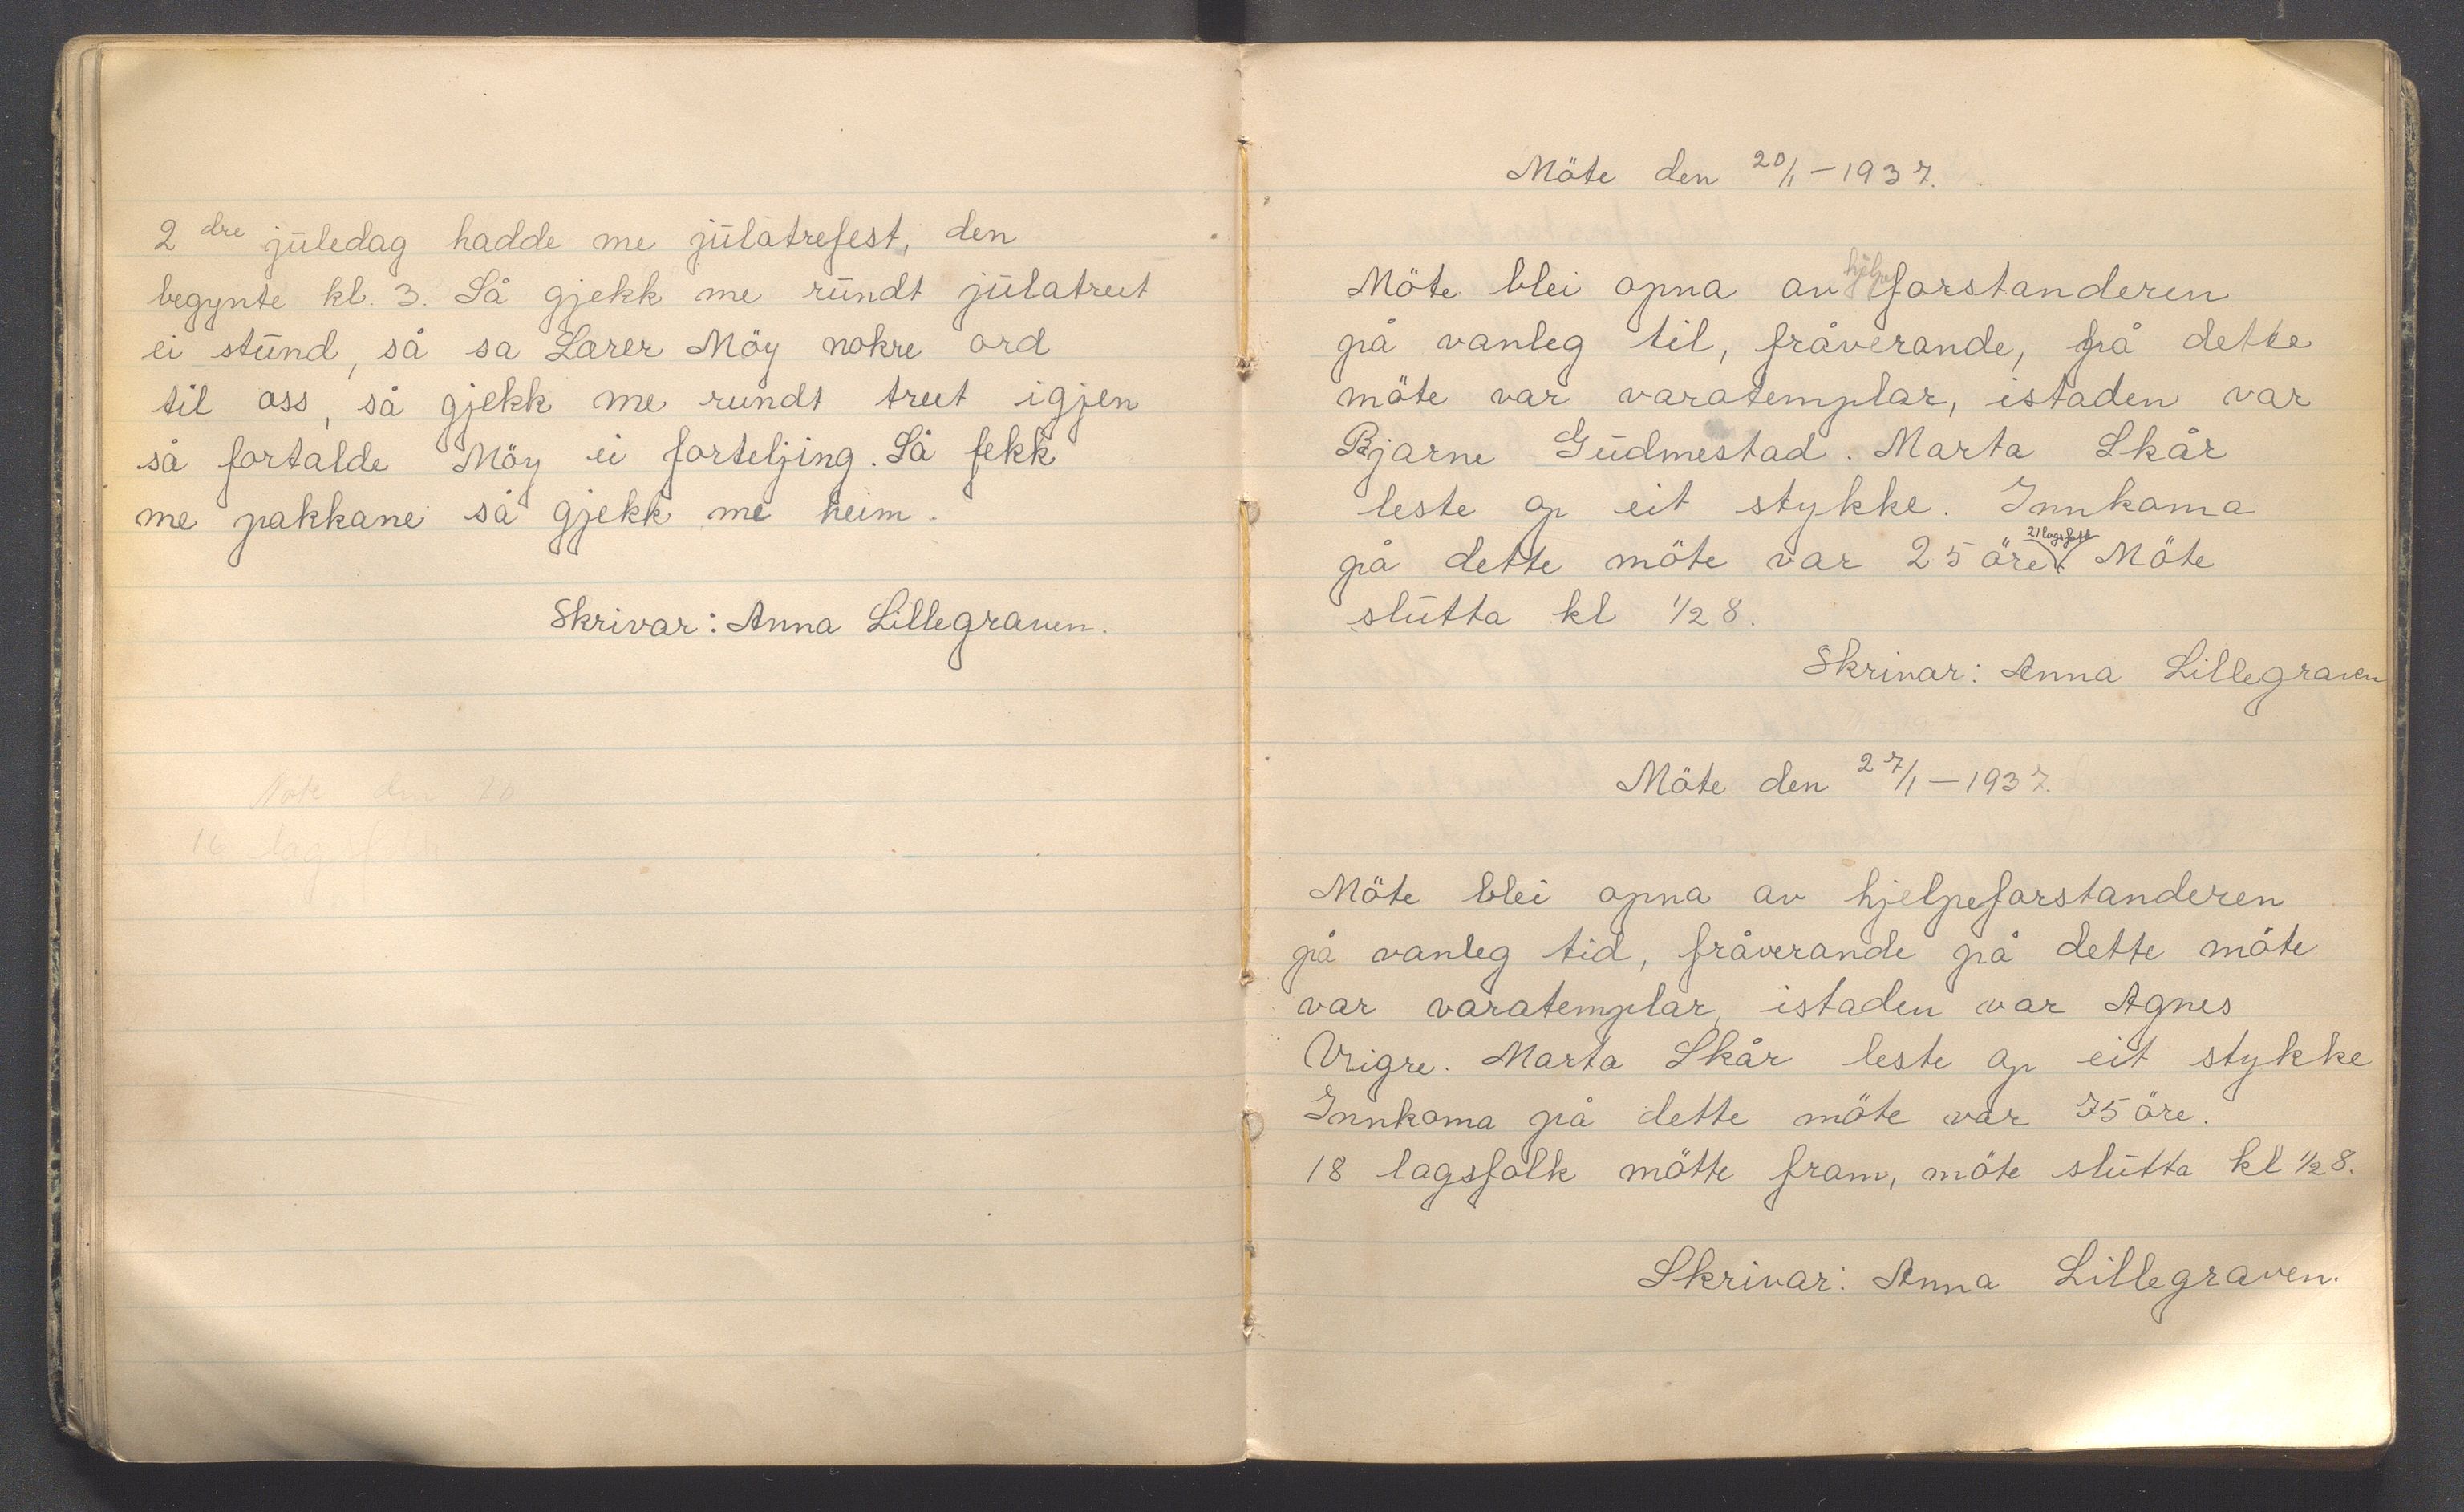 2 dre juledag hadde me julatrefest, den
begynte kl. 3. Så gjekk me rundt julatreet
ei stund, så sa Lærer Möy nokre ord
til oss, så gjekk me rundt treet igjen
så fortalde Möy ei forteljing. Så fekk
me pakkane så gjekk me heim.
Skrivar: Anna Lillegraven.
Möte den 20
lagsfolk
Möte den 20/1 – 1937.
hjelpe
Möte blei opna av forstanderen
på vanleg til, fråverande, på dette
möte var varatemplar, istaden var
Bjarne Gudmestad. Marta Skår
leste op eit stykke. Innkoma
21 lagsfolk
på dette möte var 25 öre. Möte
slutta kl 1/2 8.
Skrivar: Anna Lillegraven
Möte den 27/1 – 1937.
Möte blei opna av hjelpeforstanderen
på vanleg tid, fråverande på dette möte
var varatemplar, istaden var Agnes
Vigre. Marta Skår leste op eit stykke
Innkoma på dette möte var 75 öre.
18 lagsfolk mötte fram, möte slutta kl 1/2 8.
Skrivar: Anna Lillegraven.